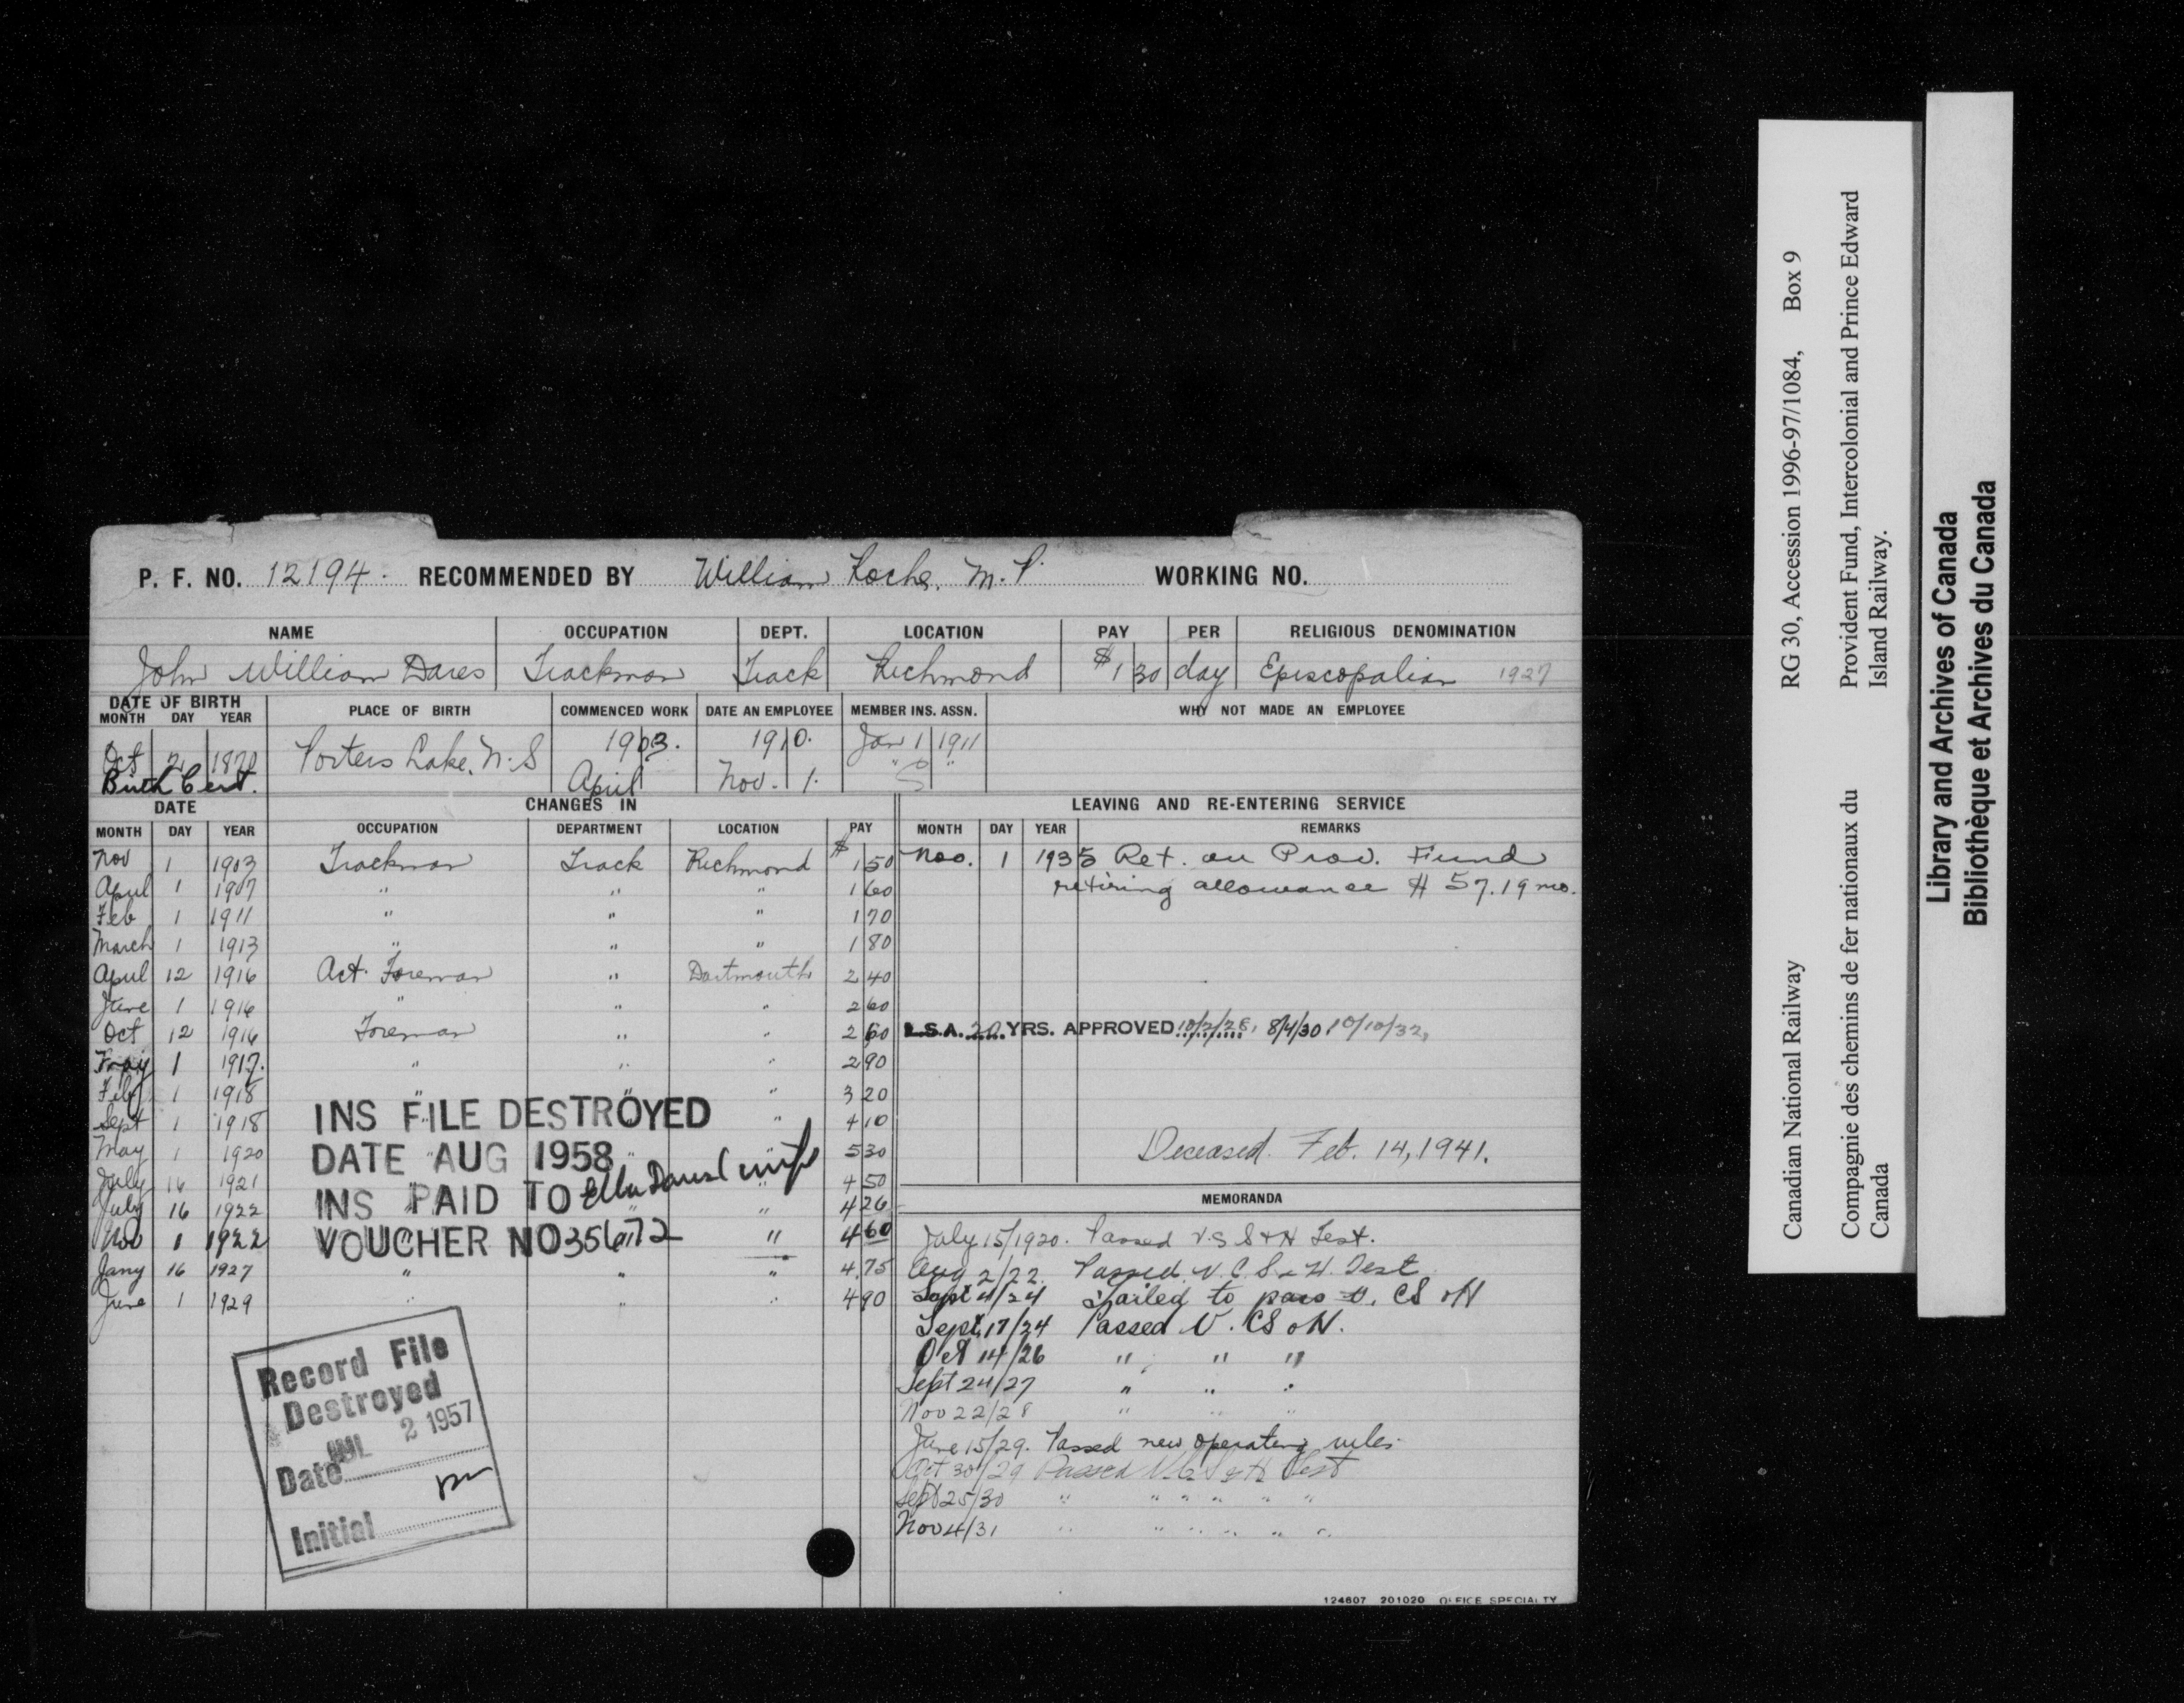 P. F. NO. 12194. RECOMMENDED BY William Roche. M.P. WORKING NO.
NAME OCCUPATION DEPT. LOCATION PAY PER RELIGIOUS DENOMINATION
John William Dares Trackman Track Richmond $1 30 day Episcopalian 1927
DATE OF BIRTH
MONTH DAY YEAR PLACE OF BIRTH COMMENCED WORK DATE AN EMPLOYEE MEMBER INS. ASSN. WHY NOT MADE AN EMPLOYEE
Oct 2 1870 Porters Lake, N.S 1903. 1910. Jan 1 1911
Birth Cert. April Nov. 1.
DATE CHANGES IN
MONTH DAY YEAR OCCUPATION DEPARTMENT LOCATION PAY
Nov 1 1903 Trackman Track Richmond $1 50
April 1 1907 " " " 1 60
Feb 1 1911 " " " 1 70
March 1 1913 " " " 1 80
April 12 1916 Act. Foreman " Dartmouth 2 40
June 1 1916 " " " 2 60
Oct 12 1916 Foreman " " 2 60
1 1917. " " " 2 90
Feb 1 1918 " " " 3 20
Sept 1 1918 " " " 4 10
May 1 1920 " " " 5 30
July 16 1921 " 4 50
July 16 1922 " 4 26
Nov 1 1922 " 4 60
Jany 16 1927 " " " 4.75
June 1 1929 " " " 4 90
INS FILE DESTROYED
DATE AUG 1958
INS PAID TO Ella Dares (wife
VOUCHER NO
Record File
Destroyed
JUL 2 1957
Date
Initial
LEAVING AND RE-ENTERING SERVICE
MONTH DAY YEAR REMARKS
Nov. 1 1935 Ret. on Prov. Fund
retiring allowance $ 57.19 mo.
L.S.A. 20 YRS. APPROVED 10/2/28, 8/4/30, 10/10/32,
Deceased. Feb. 14, 1941.
MEMORANDA
July 15/1920. Passed V.S S & H Test.
Aug 2/22. Passed V. C. S & H. Test
Sept 4/24 Failed to pass V. CS & H
Sept 17/24 Passed V. CS & H.
Oct 14/26 " " "
Sept 24/27 " " "
Nov 22/28 " " "
June 15/29. Passed new operating rules.
Oct 30/29 Passed V.C S & H Test
Sept 25/30 " " " " " "
Nov 4/31 " " " " " "
124607 201020 OFFICE SPECIALTY
Canadian National Railway RG 30, Accession 1996-97/1084, Box 9
Compagnie des chemins de fer nationaux du Provident Fund, Intercolonial and Prince Edward
Canada Island Railway.
Library and Archives of Canada
Bibliothèque et Archives du Canada